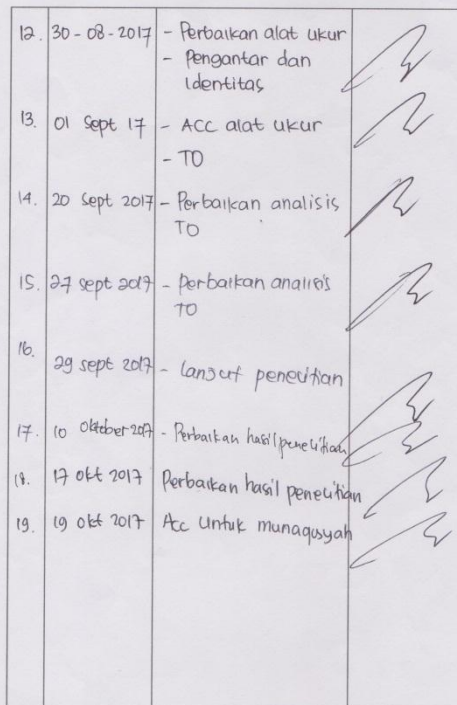 12. 30-08-2017 - Perbaikan alat ukur
- Pengantar dan
Identitas
13. 01 Sept 17 - ACC alat ukur
- TO
14. 20 Sept 2017 - Perbaikan analisis
TO
15. 27 sept 2017 - Perbaikan analisis
TO
16.
29 sept 2017 - langut penelitian
17. 10 Oktober 2017 - Perbaikan hasil penelitian
18. 17 okt 2017 Perbaikan hasil penelitian
19. 19 okt 2017 Acc untuk munaqosyah